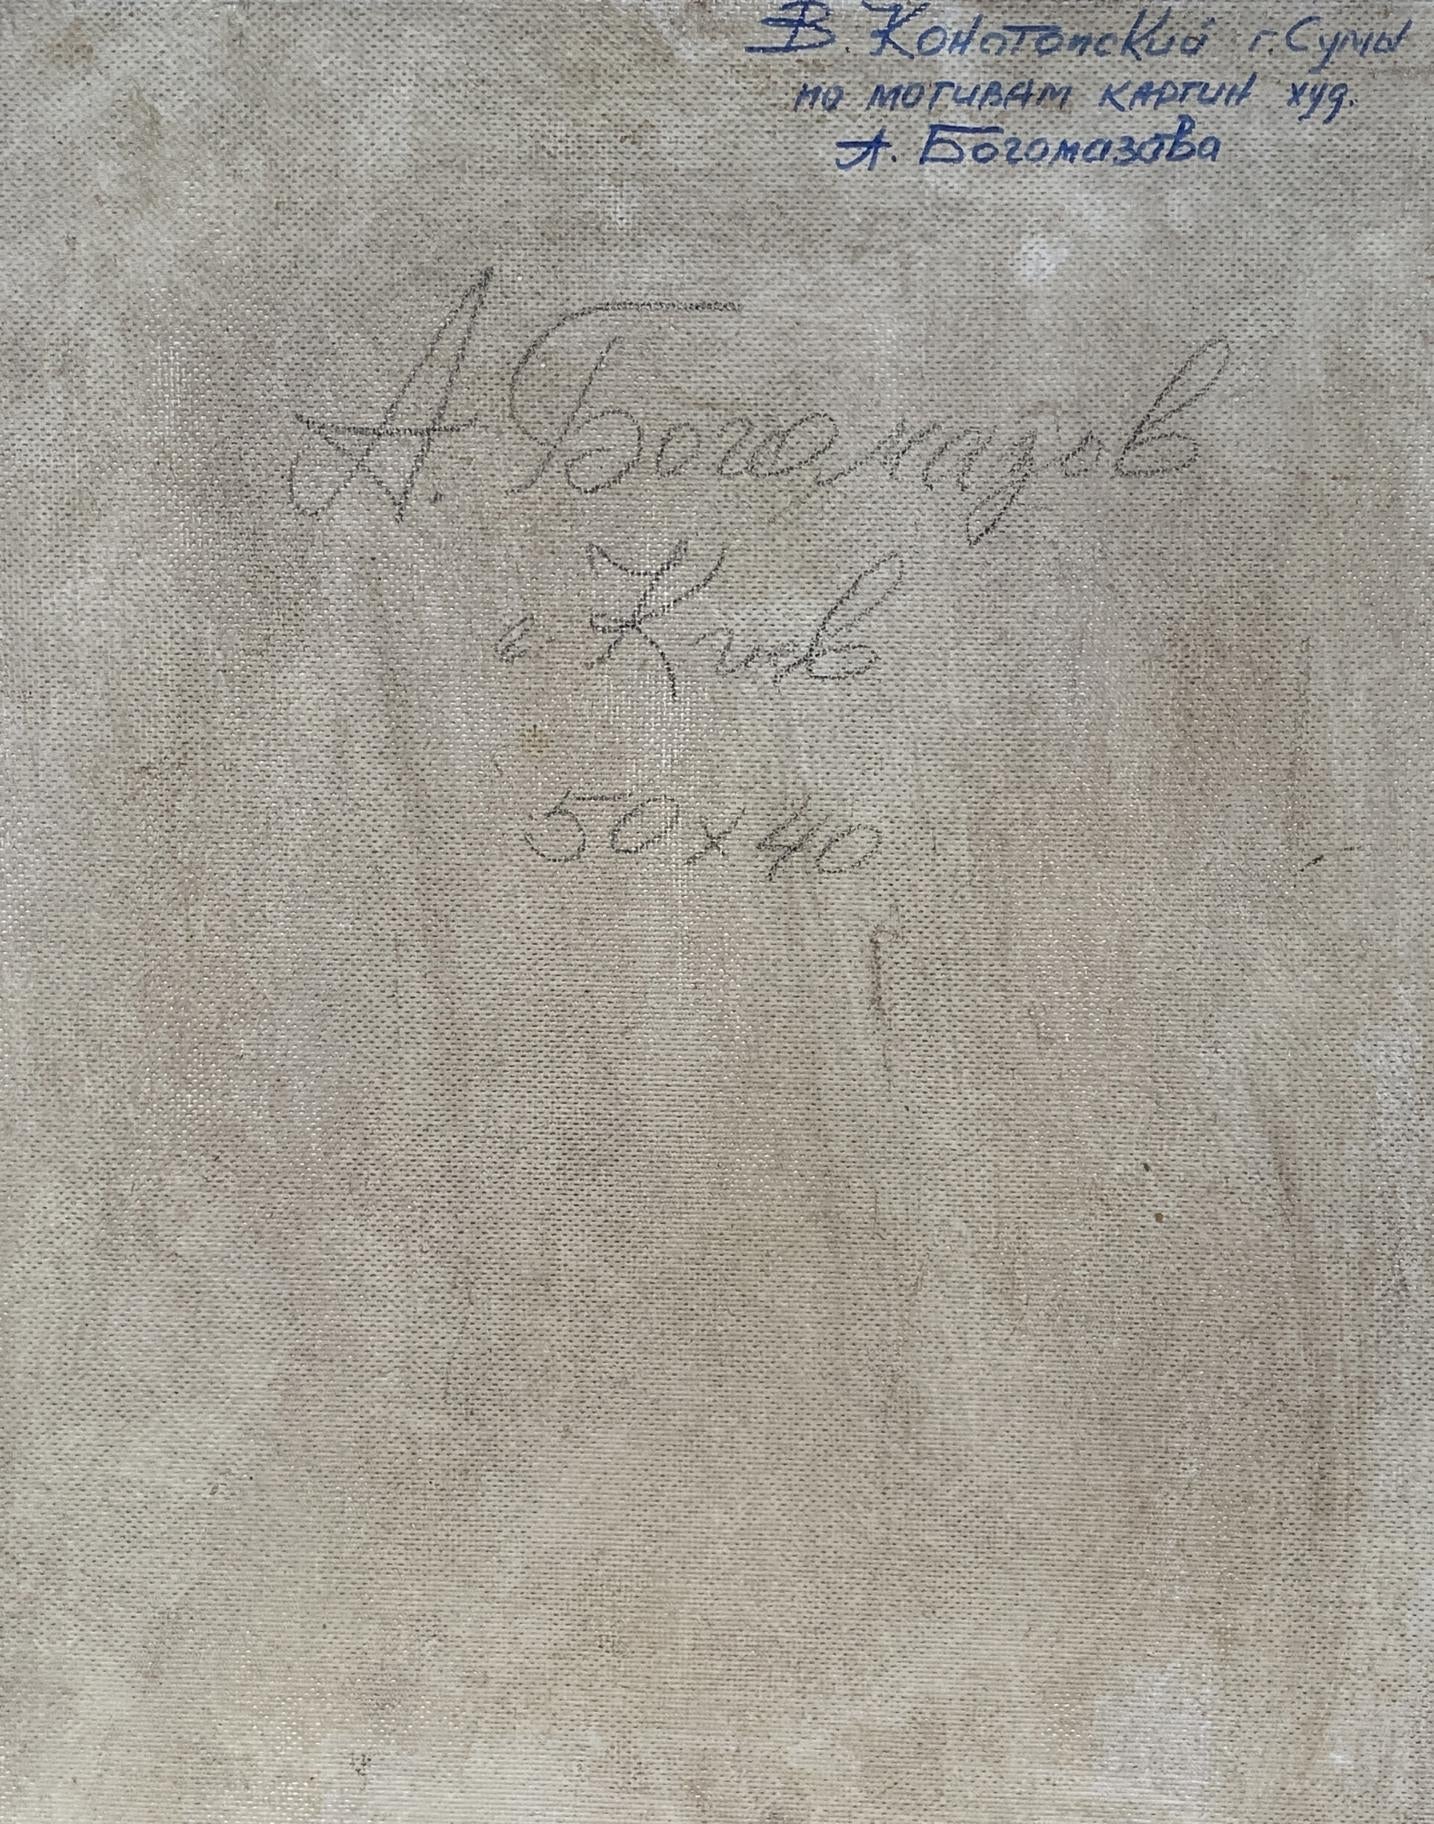 В. Конотопский г. Сумы
по мотивам картин худ.
А. Богомазова
А. Богомазов
г. Киев
50х40